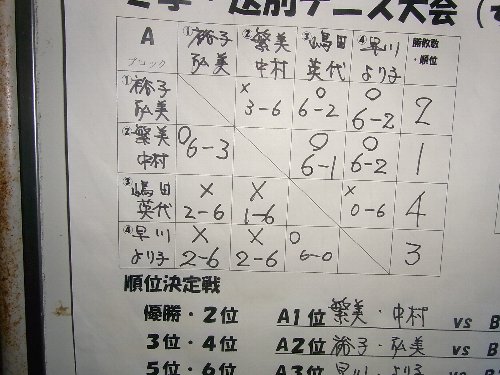 送別テニス大会
A
ブロック
①裕子
弘美
②繁美
中村
③嶋田
英代
④早川
より子
勝敗数
・順位
①裕子
弘美
×
3-6
○
6-2
○
6-2
2
②繁美
中村
○
6-3
○
6-1
○
6-2
1
③嶋田
英代
×
2-6
×
1-6
×
0-6
4
④早川
より子
×
2-6
×
2-6
○
6-0
3
順位決定戦
優勝・2位 A1位 繁美・中村 vs B
3位・4位 A2位 裕子・弘美 vs B
5位・6位 A3位 早川・より子 vs B